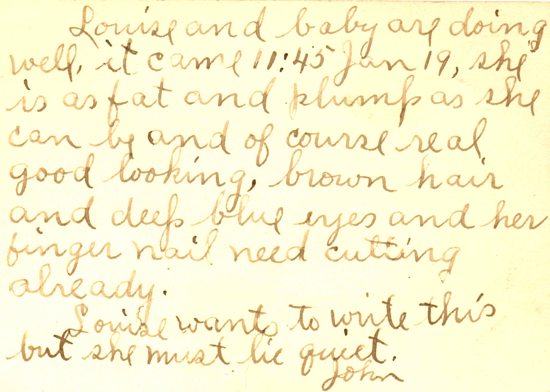 Louise and baby are doing
well, it came 11:45 Jan 19, she
is as fat and plump as she
can be and of course real
good looking, brown hair
and deep blue eyes and her
finger nail need cutting
already.
Louise wants to write this
but she must lie quiet.
John